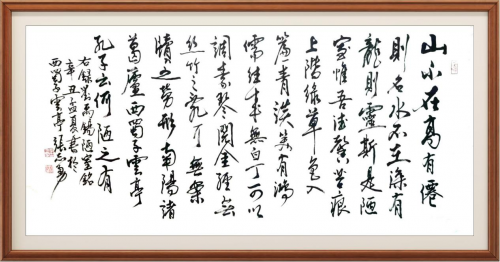 山不在高有僊
則名水不在深有
龍則靈斯是陋
室惟吾德馨苔痕
上階綠草色入
簾青談笑有鴻
儒往來無白丁可以
調素琴閱金經無
絲竹之亂耳無案
牘之勞形南陽諸
葛廬西蜀子雲亭
孔子云何陋之有
右錄劉禹錫陋室銘
辛丑孟夏書於
西蜀子雲亭張志勇